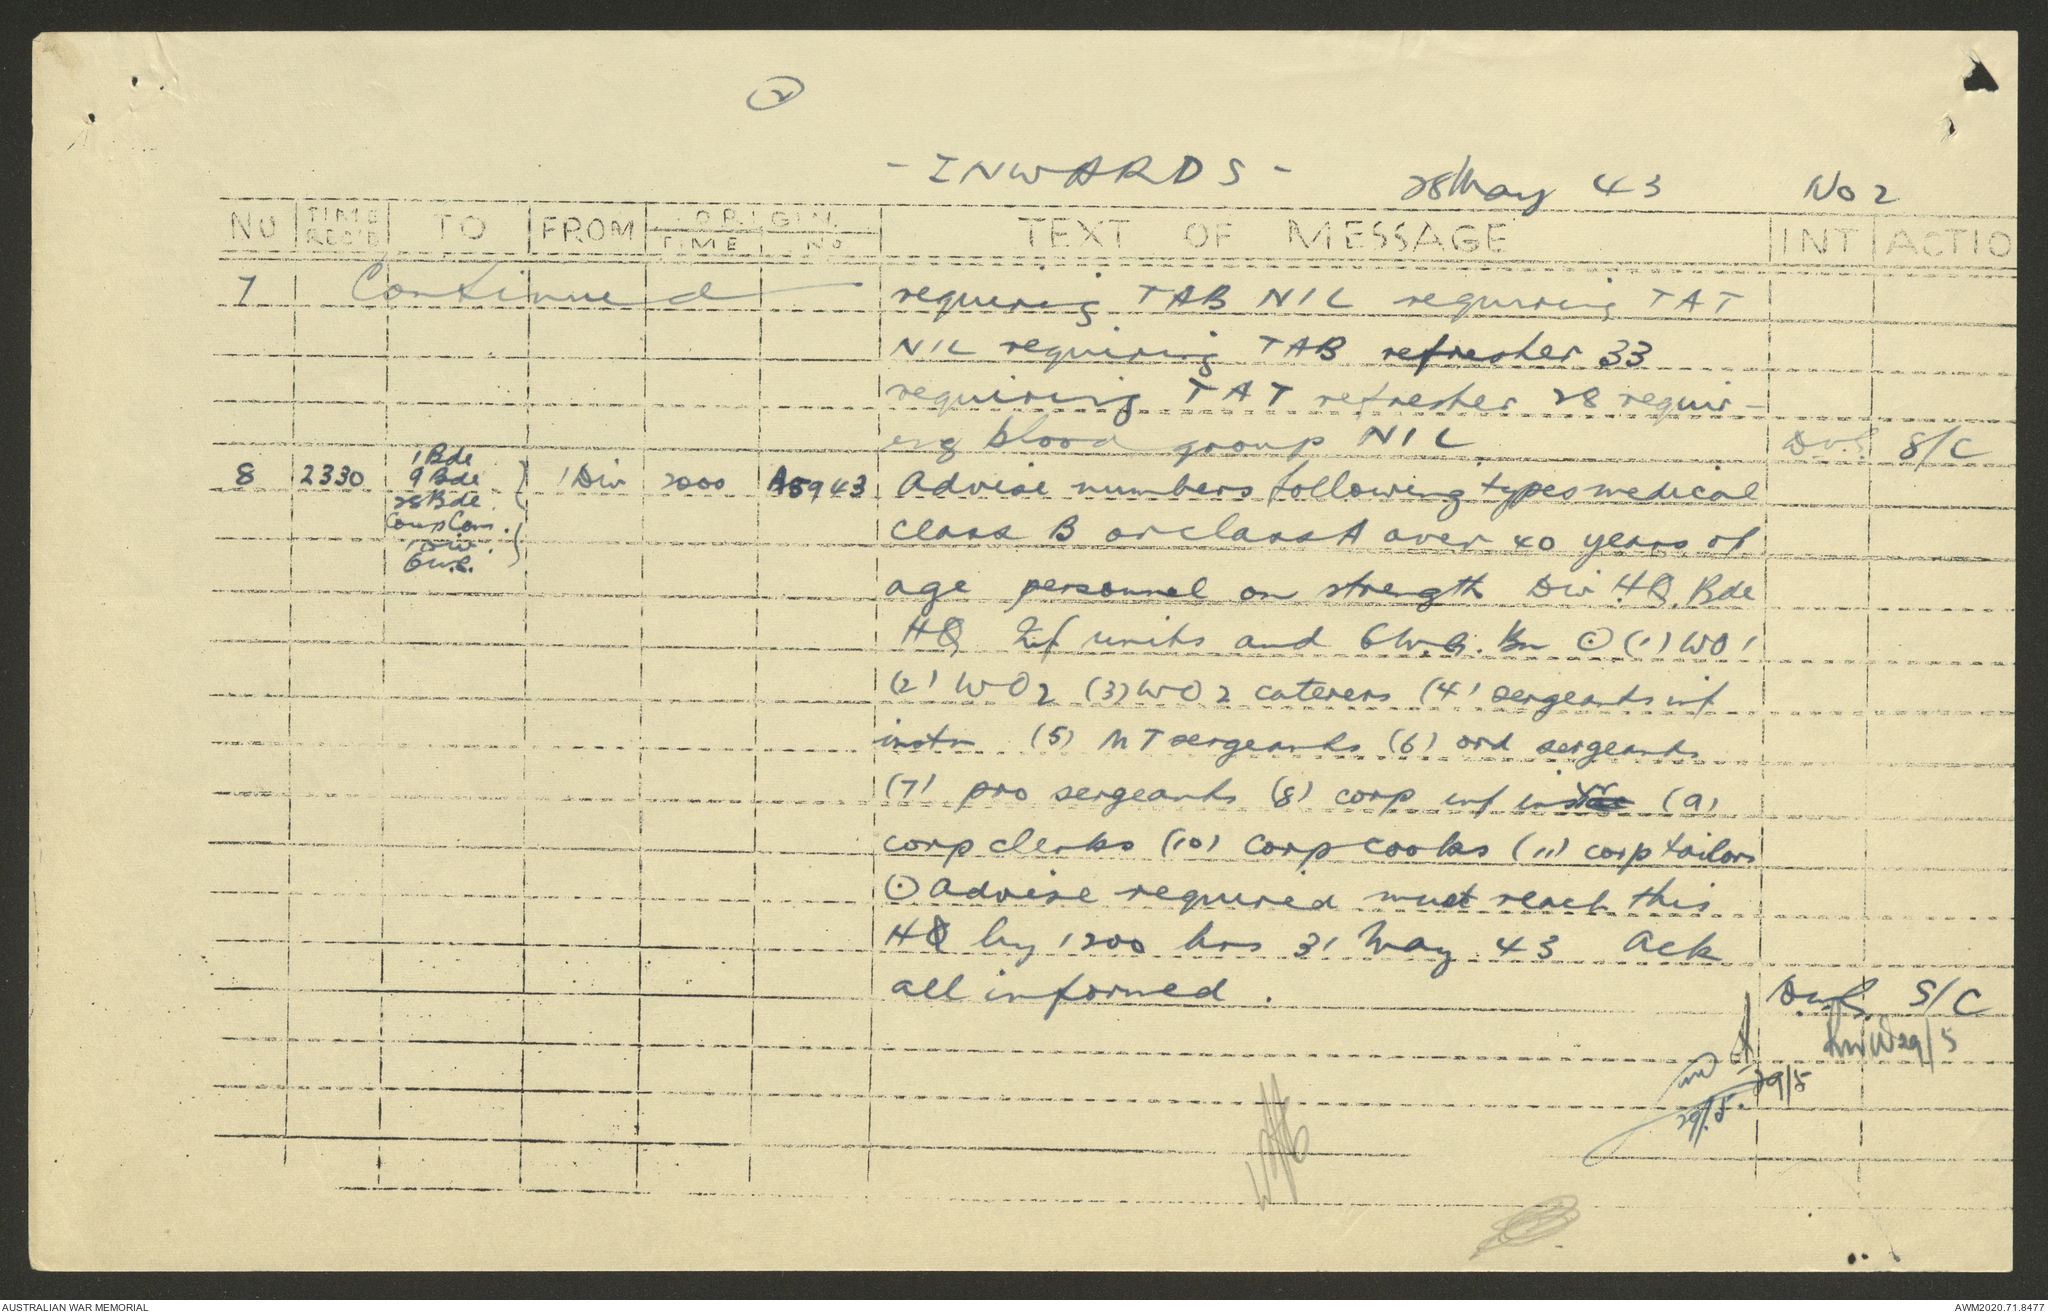 2
- INWARDS -
28 May 43 No 2
NO TIME REC'D TO FROM ORIGIN TIME NO TEXT OF MESSAGE INT ACTIO
7 Continued requiring TAB NIL requiring TAT
NIL requiring TAB refresher 33
requiring TAT refresher 28 requir-
ing blood group NIL S/C
8 2330 1 Bde 9 Bde 28 Bde. 1 Div 2000 A5943 Advise numbers following types medical
class B or class A over 40 years of
age personnel on strength Div HQ. Bde
HQ Inf units and 6 W.G. Bn ⊙ (1) WO1
(2) WO2 (3) WO2 caterers (4) sergeants inf
instr (5) MT sergeants (6) ord sergeants
(7) pro sergeants (8) corp inf instr (9)
corp clerks (10) corp cooks (11) corp tailors
⊙ Advise required must reach this
HQ by 1200 hrs 31 May 43 Ack
all informed. S/C
29/5
29/5
29/5.
AUSTRALIAN WAR MEMORIAL
AWM2020.71.8477